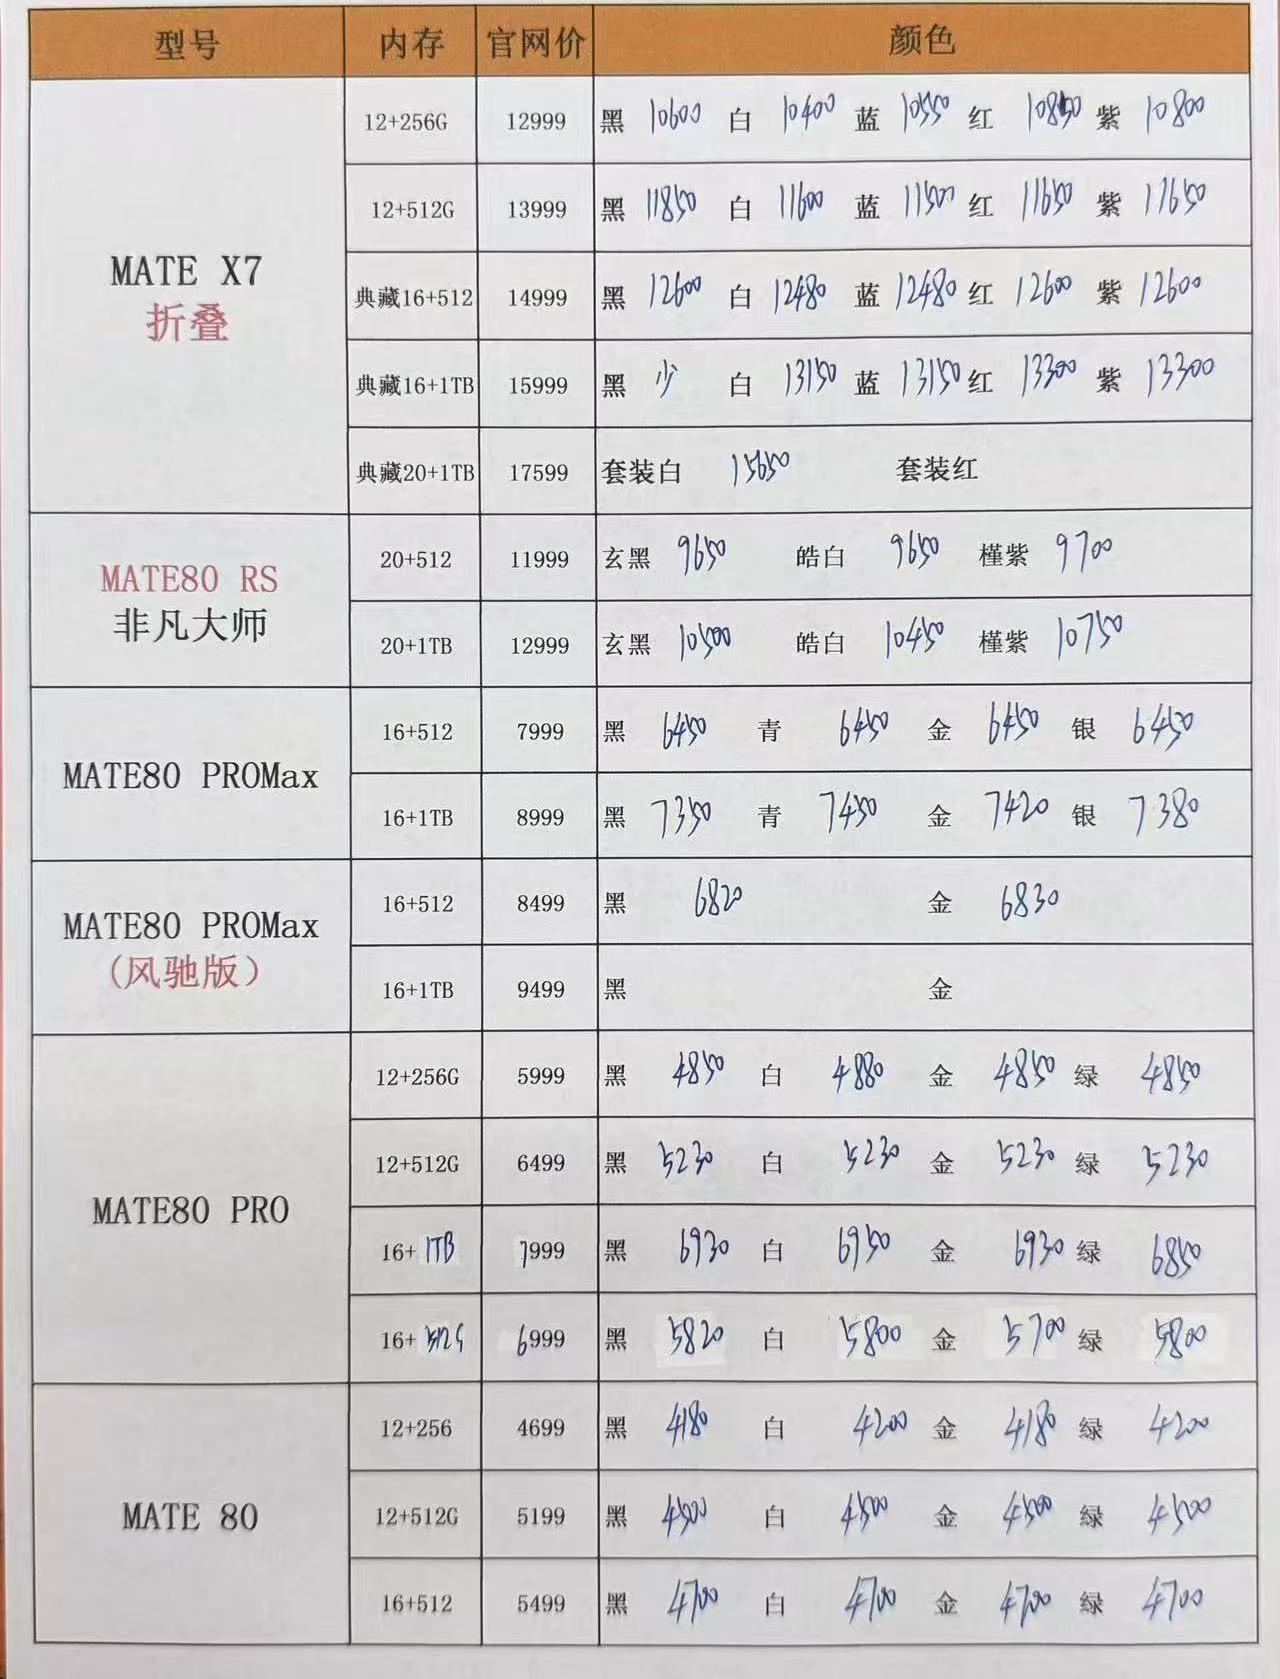 型号 内存 官网价 颜色
MATE X7
折叠
12+256G 12999 黑 10600 白 10400 蓝 10550 红 10850 紫 10800
12+512G 13999 黑 11850 白 11600 蓝 11500 红 11650 紫 11650
典藏16+512 14999 黑 12600 白 12480 蓝 12480 红 12600 紫 12600
典藏16+1TB 15999 黑 少 白 13150 蓝 13150 红 13300 紫 13300
典藏20+1TB 17599 套装白 15650 套装红
MATE80 RS
非凡大师
20+512 11999 玄黑 9650 皓白 9650 槿紫 9700
20+1TB 12999 玄黑 10500 皓白 10450 槿紫 10750
MATE80 PROMax
16+512 7999 黑 6450 青 6450 金 6450 银 6450
16+1TB 8999 黑 7350 青 7450 金 7420 银 7380
MATE80 PROMax
(风驰版)
16+512 8499 黑 6820 金 6830
16+1TB 9499 黑 金
MATE80 PRO
12+256G 5999 黑 4850 白 4880 金 4850 绿 4850
12+512G 6499 黑 5230 白 5230 金 5230 绿 5230
16+1TB 7999 黑 6930 白 6950 金 6930 绿 6850
16+512G 6999 黑 5820 白 5800 金 5700 绿 5800
MATE 80
12+256 4699 黑 4180 白 4200 金 4180 绿 4200
12+512G 5199 黑 4500 白 4500 金 4500 绿 4500
16+512 5499 黑 4700 白 4700 金 4700 绿 4700